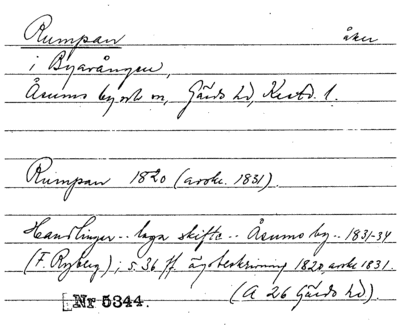 Rumpan åker
i Byavången,
Åsums by och sn, Gärds hd, Krstd. l.
Rumpan 1820 (avskr. 1831).
Handlingar .. laga skifte .. Åsums by .. 1831-34
(F. Ryberg); s. 36 ff ägobeskrivning 1820 avskr 1831.
(A 26 Gärds hd).
Nr 5344.